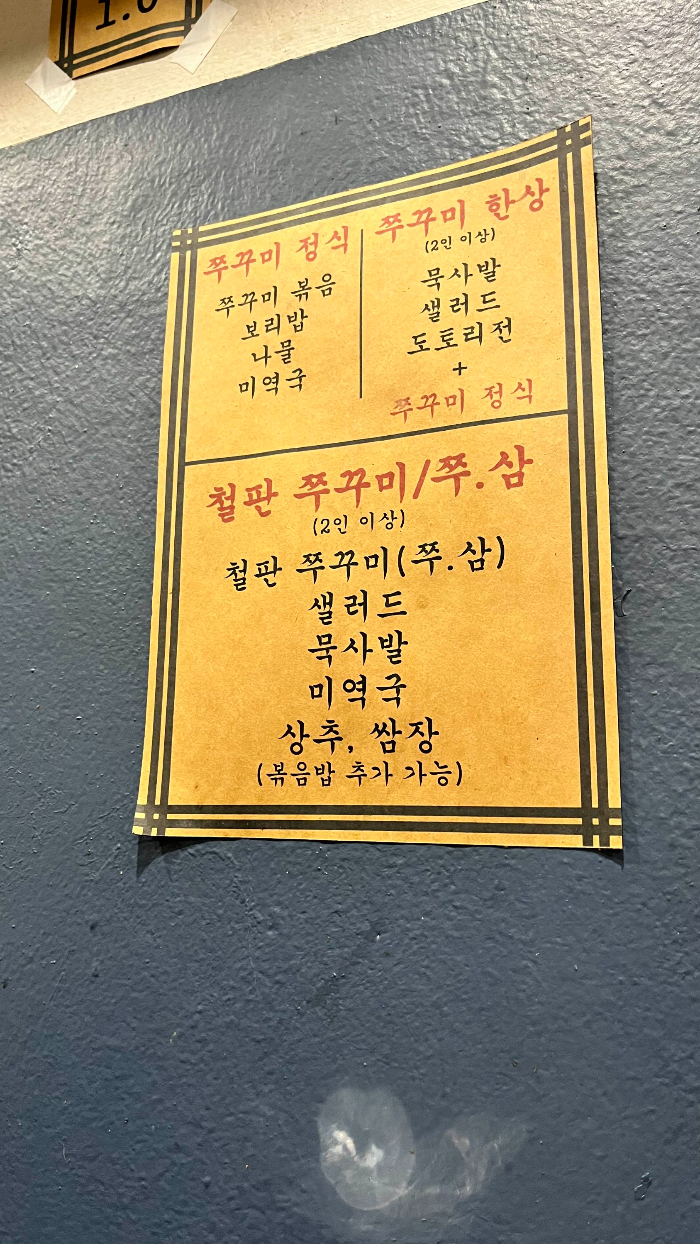 1.0
쭈꾸미 정식
쭈꾸미 볶음
보리밥
나물
미역국
쭈꾸미 한상
(2인 이상)
묵사발
샐러드
도토리전
+
쭈꾸미 정식
철판 쭈꾸미/쭈.삼
(2인 이상)
철판 쭈꾸미(쭈.삼)
샐러드
묵사발
미역국
상추, 쌈장
(볶음밥 추가 가능)